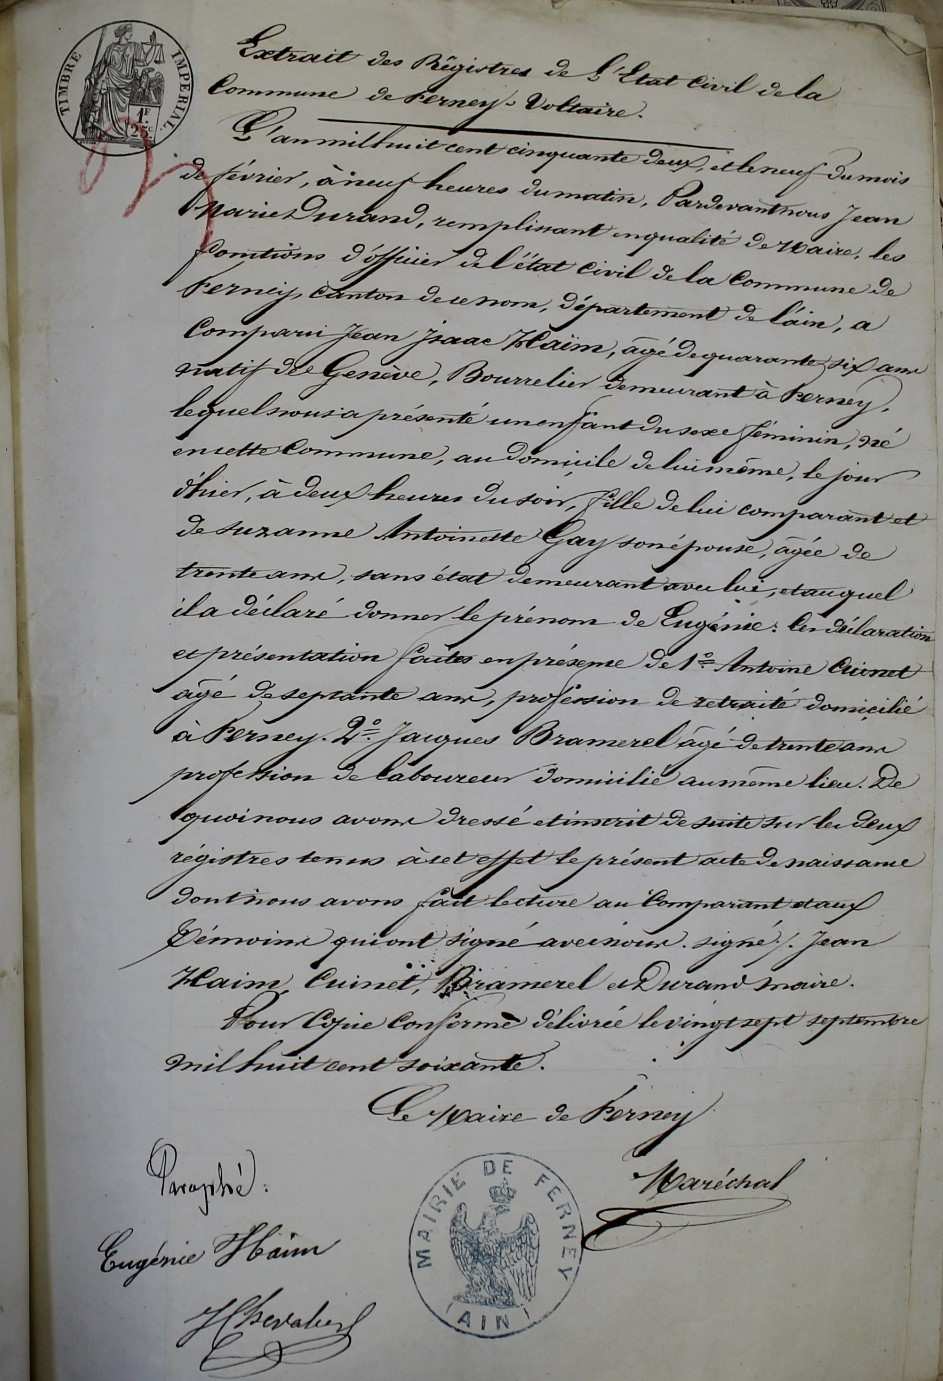 TIMBRE IMPERIAL.
1F
25c
Extrait des Régistres de L'Etat Civil de la
Commune de Ferney-Voltaire.
L'an mil huit cent cinquante deux, et le neuf du mois
de février, à neuf heures du matin, Pardevant nous Jean
Marie Durand, remplissant en qualité de Maire, les
fonctions d'officier de l'état civil de la Commune de
Ferney, canton de ce nom, département de l'ain, a
Comparu Jean Isaac Haïm, âgé de quarante six ans
natif de Genève, Bourrelier demeurant à Ferney,
lequel nous a présenté un enfant du sexe féminin, né
en cette Commune, au domicile de lui même, le jour
d'hier, à deux heures du soir, fille de lui comparant et
de Suzanne Antoinette Gay son épouse, âgée de
trente ans, sans état demeurant avec lui, et auquel
il a déclaré donner le prénom de Eugénie: les déclaration
et présentation faites en présence de 1o Antoine Cuinet
âgé de septante ans, profession de retraité domicilié
à Ferney. 2o Jacques Bramerel âgé de trente ans
profession de Laboureur domicilié au même lieu. De
quoi nous avons dressé et inscrit de suite sur les deux
régistres tenus à cet effet le présent acte de naissance
dont nous avons fait lecture au Comparant et aux
témoins qui ont signé avec nous. signé /. Jean
Haim, Cuinet, Bramerel et Durand maire.
Pour Copie Conforme délivrée le vingt sept septembre
mil huit cent soixante.
Le Maire de Ferney
Maréchal
Paraphé:
Eugénie Haïm
H Chevalier
MAIRIE DE FERNEY
(AIN)